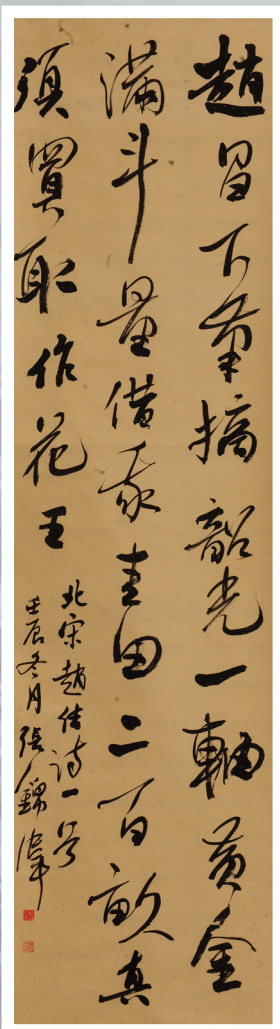 趙昌下筆摘韶光一軸黃金
滿斗量借我圭田二百畝真
須買取作花王
北宋趙佶詩一首
壬辰冬月張錦澤